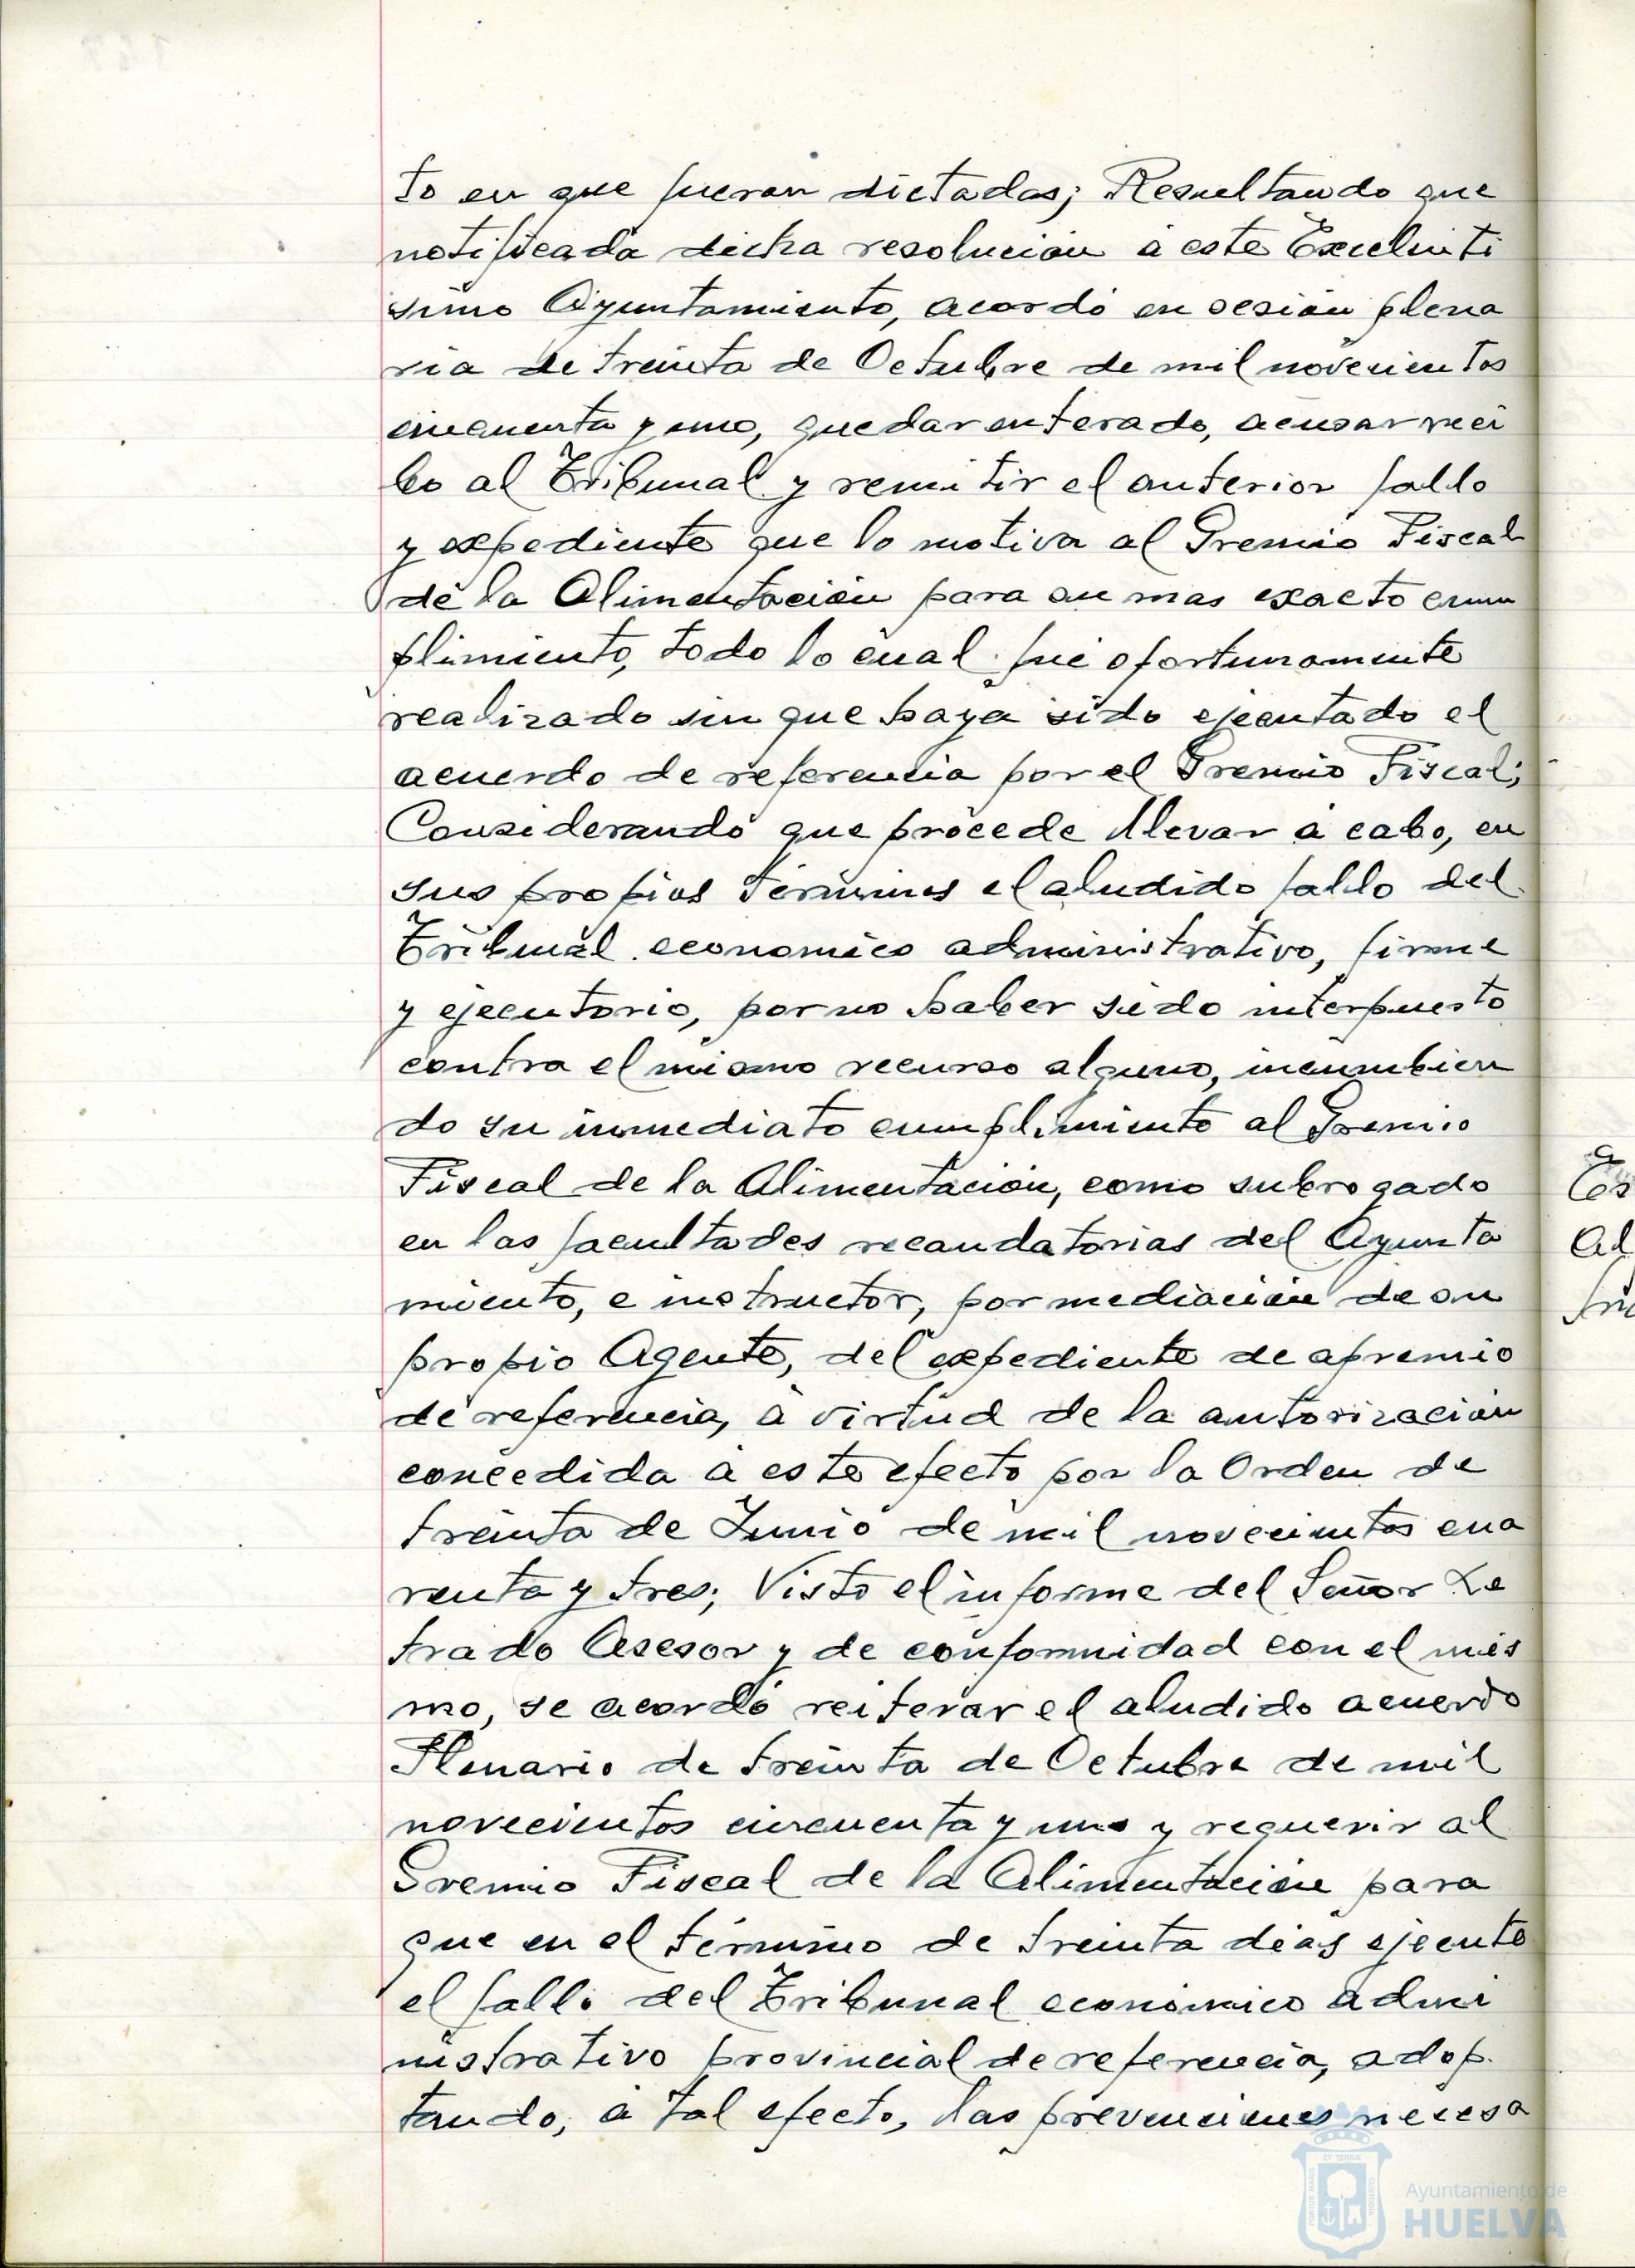 to en que fueran dictadas; Resultando que
notificada dicha resolución á este Excelentí
simo Ayuntamiento, acordó en sesión plena
ria de treinta de Octubre de mil novecientos
cincuenta y uno, quedar enterado, acusar reci
bo al Tribunal y remitir el anterior fallo
y expediente que lo motiva al Gremio Fiscal
de la Alimentación para su mas exacto cum
plimiento, todo lo cual fué oportunamente
realizado sin que haya sido ejecutado el
acuerdo de referencia por el Gremio Fiscal;
Considerando que procede llevar á cabo, en
sus propios términos el aludido fallo del
Tribunal económico administrativo, firme
y ejecutorio, por no haber sido interpuesto
contra el mismo recurso alguno, incumbien
do su inmediato cumplimiento al Gremio
Fiscal de la Alimentación, como subrogado
en las facultades recaudatorias del Ayunta
miento, e instructor, por mediación de su
propio Agente, del expediente de apremio
de referencia, á virtud de la autorización
concedida á este efecto por la Orden de
treinta de Junio de mil novecientos cua
renta y tres; Visto el informe del Señor Le
trado Asesor y de conformidad con el mis
mo, se acordó reiterar el aludido acuerdo
Plenario de treinta de Octubre de mil
novecientos cincuenta y uno y requerir al
Gremio Fiscal de la Alimentación para
que en el término de treinta días ejecute
el fallo del Tribunal económico admi
nistrativo provincial de referencia, adop-
tando, á tal efecto, las prevenciones necesa
Ayuntamiento de
HUELVA